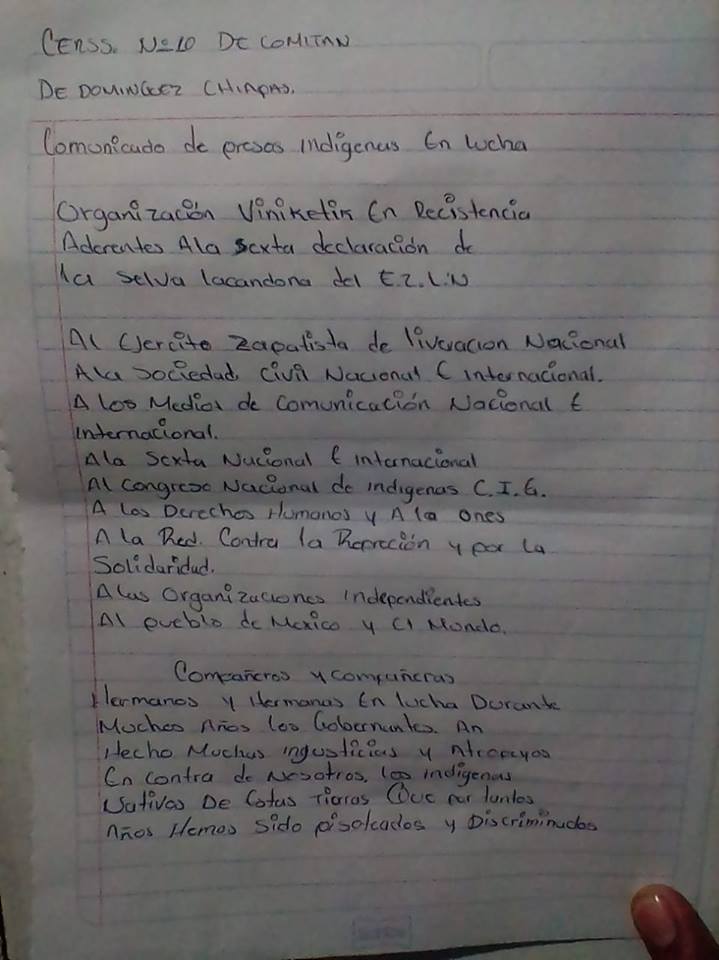 CERSS. No 10 DE COMITAN
DE DOMINGUEZ CHIAPAS.
Comunicado de presos indígenas En lucha
Organización Viniketik En Recistencia
Aderentes Ala sexta declaración de
la selva lacandona del E.Z.L.N
Al Ejercito Zapatista de liveracion Nacional
Ala Sociedad Civil Nacional E internacional.
A los Medios de Comunicación Nacional E
internacional.
Ala Sexta Nacional E internacional
Al Congreso Nacional de indigenas C.I.G.
A los Derechos Humanos y A la ones
A la Red. Contra la Repreción y por la
Solidaridad.
Alas Organizaciones independientes
Al pueblo de Mexico y El Mundo.
Compañeros y compañeras
Hermanos y Hermanas En lucha Durante
Muchos Años los Gobernantes. An
Hecho Muchas ingusticias y Atropeyos
En contra de Nosotros. los indigenas
Nativos De Estas Tieras Que por tantos
Años Hemos Sido pisoteados y Discriminados